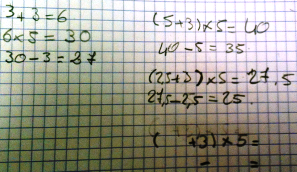 3+3=6
6×5=30
30-3=27
(5+3)×5=40
40-5=35
(2,5+3)×5=27,5
27,5-2,5=25.
( +3)×5=
- =